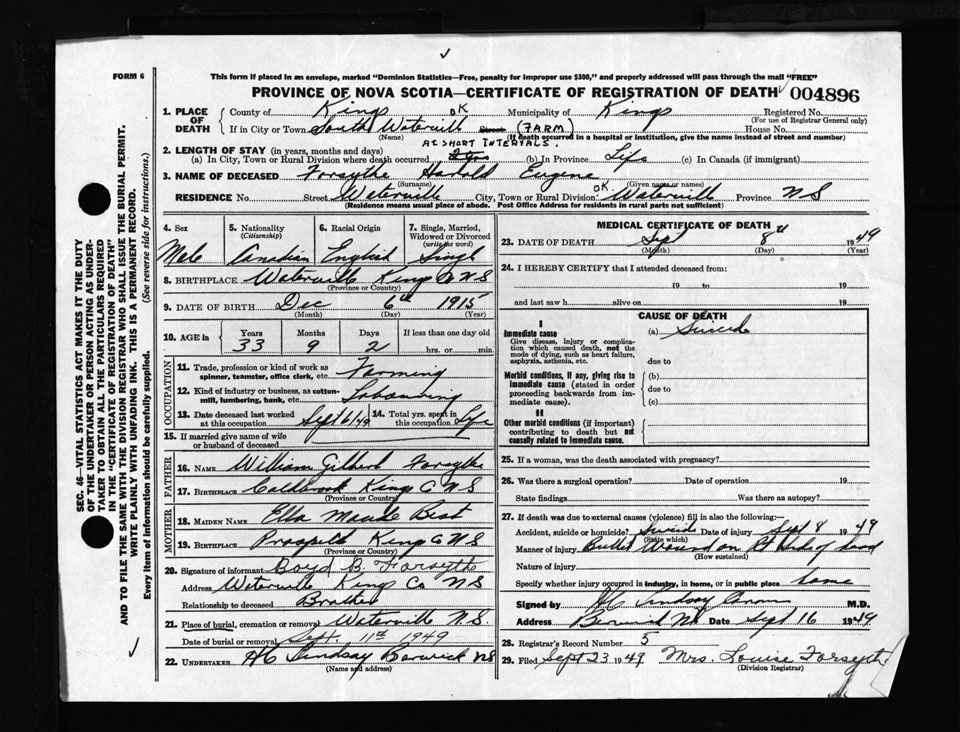 FORM 6
This form if placed in an envelope, marked "Dominion Statistics—Free, penalty for improper use $300," and properly addressed will pass through the mail "FREE"
PROVINCE OF NOVA SCOTIA—CERTIFICATE OF REGISTRATION OF DEATH 004896
1. PLACE OF DEATH County of Kings OK Municipality of Kings Registered No.
(For use of Registrar General only)
If in City or Town South Waterville Street (FARM) House No.
(Name) (If death occurred in a hospital or institution, give the name instead of street and number)
AT SHORT INTERVALS.
2. LENGTH OF STAY (in years, months and days)
(a) In City, Town or Rural Division where death occurred (b) In Province Life (c) In Canada (if immigrant)
3. NAME OF DECEASED Forsythe Harold Eugene
(Surname) (Given name or names)
RESIDENCE No. Street Waterville City, Town or Rural Division OK Waterville Province NS
(Residence means usual place of abode. Post Office Address for residents in rural parts not sufficient)
4. Sex 5. Nationality (Citizenship) 6. Racial Origin 7. Single, Married, Widowed or Divorced (write the word)
Male Canadian English Single
8. BIRTHPLACE Waterville Kings Co NS
(Province or Country)
9. DATE OF BIRTH Dec 6th 1915
(Month) (Day) (Year)
10. AGE in Years Months Days If less than one day old
33 9 2 hrs. or min.
OCCUPATION
11. Trade, profession or kind of work as spinner, teamster, office clerk, etc. Farming
12. Kind of industry or business, as cotton-mill, lumbering, bank, etc. Labouring
13. Date deceased last worked at this occupation Sept 6/49 14. Total yrs. spent in this occupation Life
15. If married give name of wife or husband of deceased
FATHER
16. NAME William Gilbert Forsythe
17. BIRTHPLACE Coldbrook Kings Co NS
(Province or Country)
MOTHER
18. MAIDEN NAME Ella Maude Best
19. BIRTHPLACE Prospect Kings Co NS
(Province or Country)
20. Signature of informant Boyd B. Forsythe
Address Waterville Kings Co NS
Relationship to deceased Brother
21. Place of burial, cremation or removal Waterville N.S.
Date of burial or removal Sept. 11th 1949
22. UNDERTAKER HC Lindsay Berwick NS
(Name and address)
MEDICAL CERTIFICATE OF DEATH
23. DATE OF DEATH Sept 8th 1949
(Month) (Day) (Year)
24. I HEREBY CERTIFY that I attended deceased from:
19 to 19
and last saw h alive on 19
CAUSE OF DEATH
I
Immediate cause (a) Suicide
Give disease, injury or complication which caused death, not the mode of dying, such as heart failure, asphyxia, asthenia, etc. due to
Morbid conditions, if any, giving rise to immediate cause (stated in order proceeding backwards from immediate cause). (b)
due to
(c)
II
Other morbid conditions (if important) contributing to death but not causally related to immediate cause.
25. If a woman, was the death associated with pregnancy?
26. Was there a surgical operation? Date of operation 19
State findings Was there an autopsy?
27. If death was due to external causes (violence) fill in also the following:—
Accident, suicide or homicide? Suicide Date of injury Sept 8 1949
(State which)
Manner of injury Bullet Wound on Rt side of head
(How sustained)
Nature of injury
Specify whether injury occurred in industry, in home, or in public place home
Signed by HC Lindsay M.D.
Address Berwick NS Date Sept 16 1949
28. Registrar's Record Number 5
29. Filed Sept 23 1949 Mrs. Louise Forsythe
(Division Registrar)
SEC. 46—VITAL STATISTICS ACT MAKES IT THE DUTY
OF THE UNDERTAKER OR PERSON ACTING AS UNDER-
TAKER TO OBTAIN ALL THE PARTICULARS REQUIRED
IN THE "CERTIFICATE OF REGISTRATION OF DEATH"
AND TO FILE THE SAME WITH THE DIVISION REGISTRAR WHO SHALL ISSUE THE BURIAL PERMIT.
WRITE PLAINLY WITH UNFADING INK. THIS IS A PERMANENT RECORD.
Every item of information should be carefully supplied. (See reverse side for instructions.)